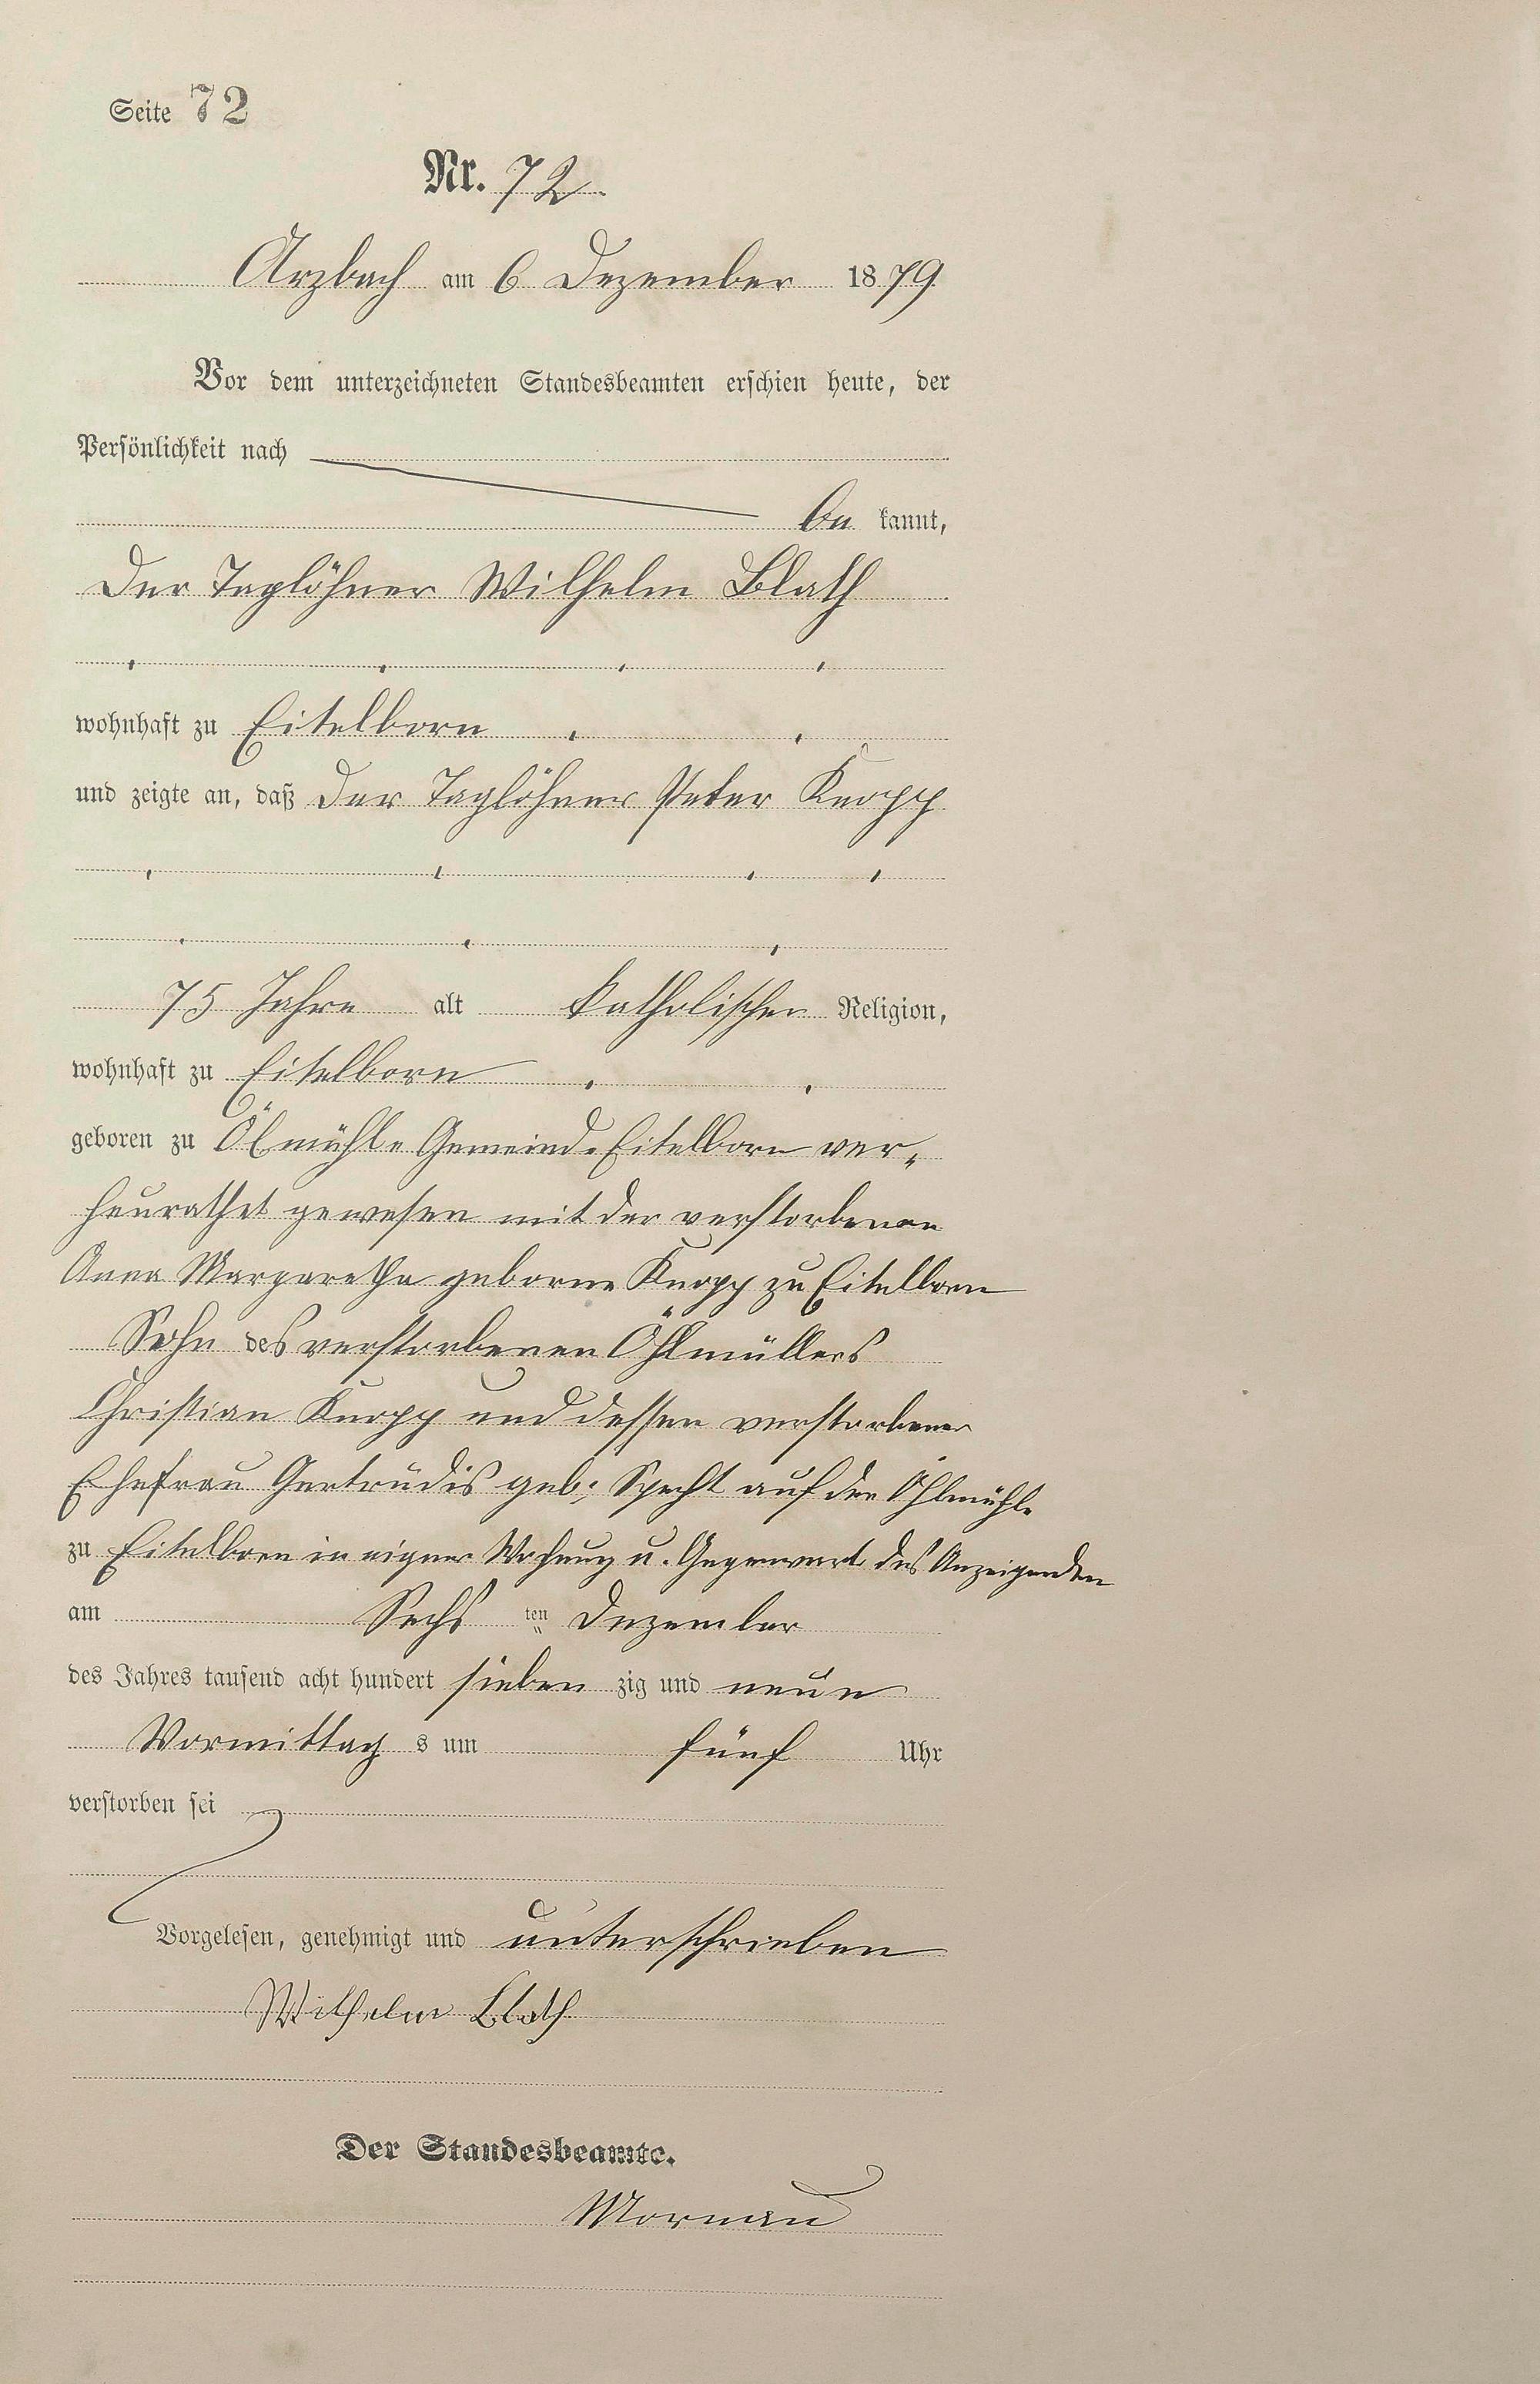 Seite 72
Nr. 72.
Arzbach am 6 Dezember 1879.
Vor dem unterzeichneten Standesbeamten erschien heute, der
Persönlichkeit nach
be kannt,
Der Taglöhner Wilhelm Blath
wohnhaft zu Eitelborn
und zeigte an, daß Der Taglöhner Peter Knopp
75 Jahre alt katholischer Religion,
wohnhaft zu Eitelborn
geboren zu Ölmühle Gemeinde Eitelborn ver„
heurathet gewesen mit der verstorbenen
Anna Margaretha geborne Knopp zu Eitelborn
Sohn des verstorbenen Öhlmüllers
Christian Knopp und dessen verstorbener
Ehefrau Gertrudis geb: Specht auf der Öhlmühle
zu Eitelborn in eigner Wohnung u. Gegenwart des Anzeigenden
am Sechs ten Dezember
des Jahres tausend acht hundert sieben zig und neun
Vormittag s um fünf Uhr
verstorben sei
Vorgelesen, genehmigt und unterschrieben
Wilhelm Blath
Der Standesbeamte.